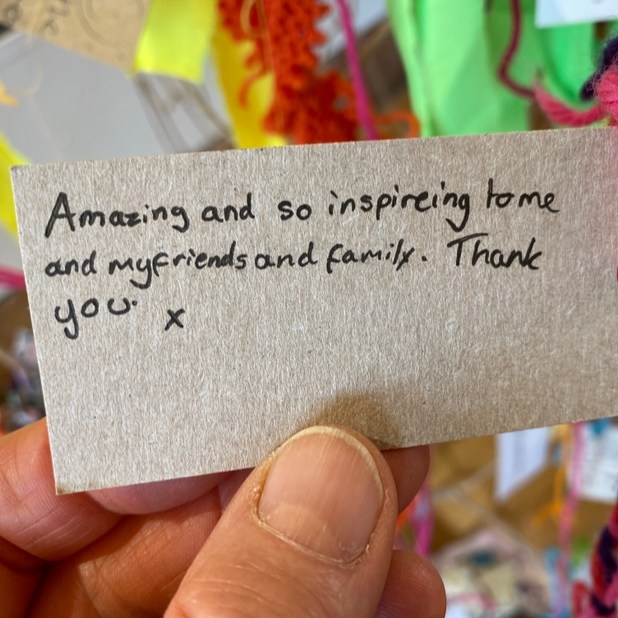 Amazing and so inspireing to me
and my friends and family. Thank
you. x